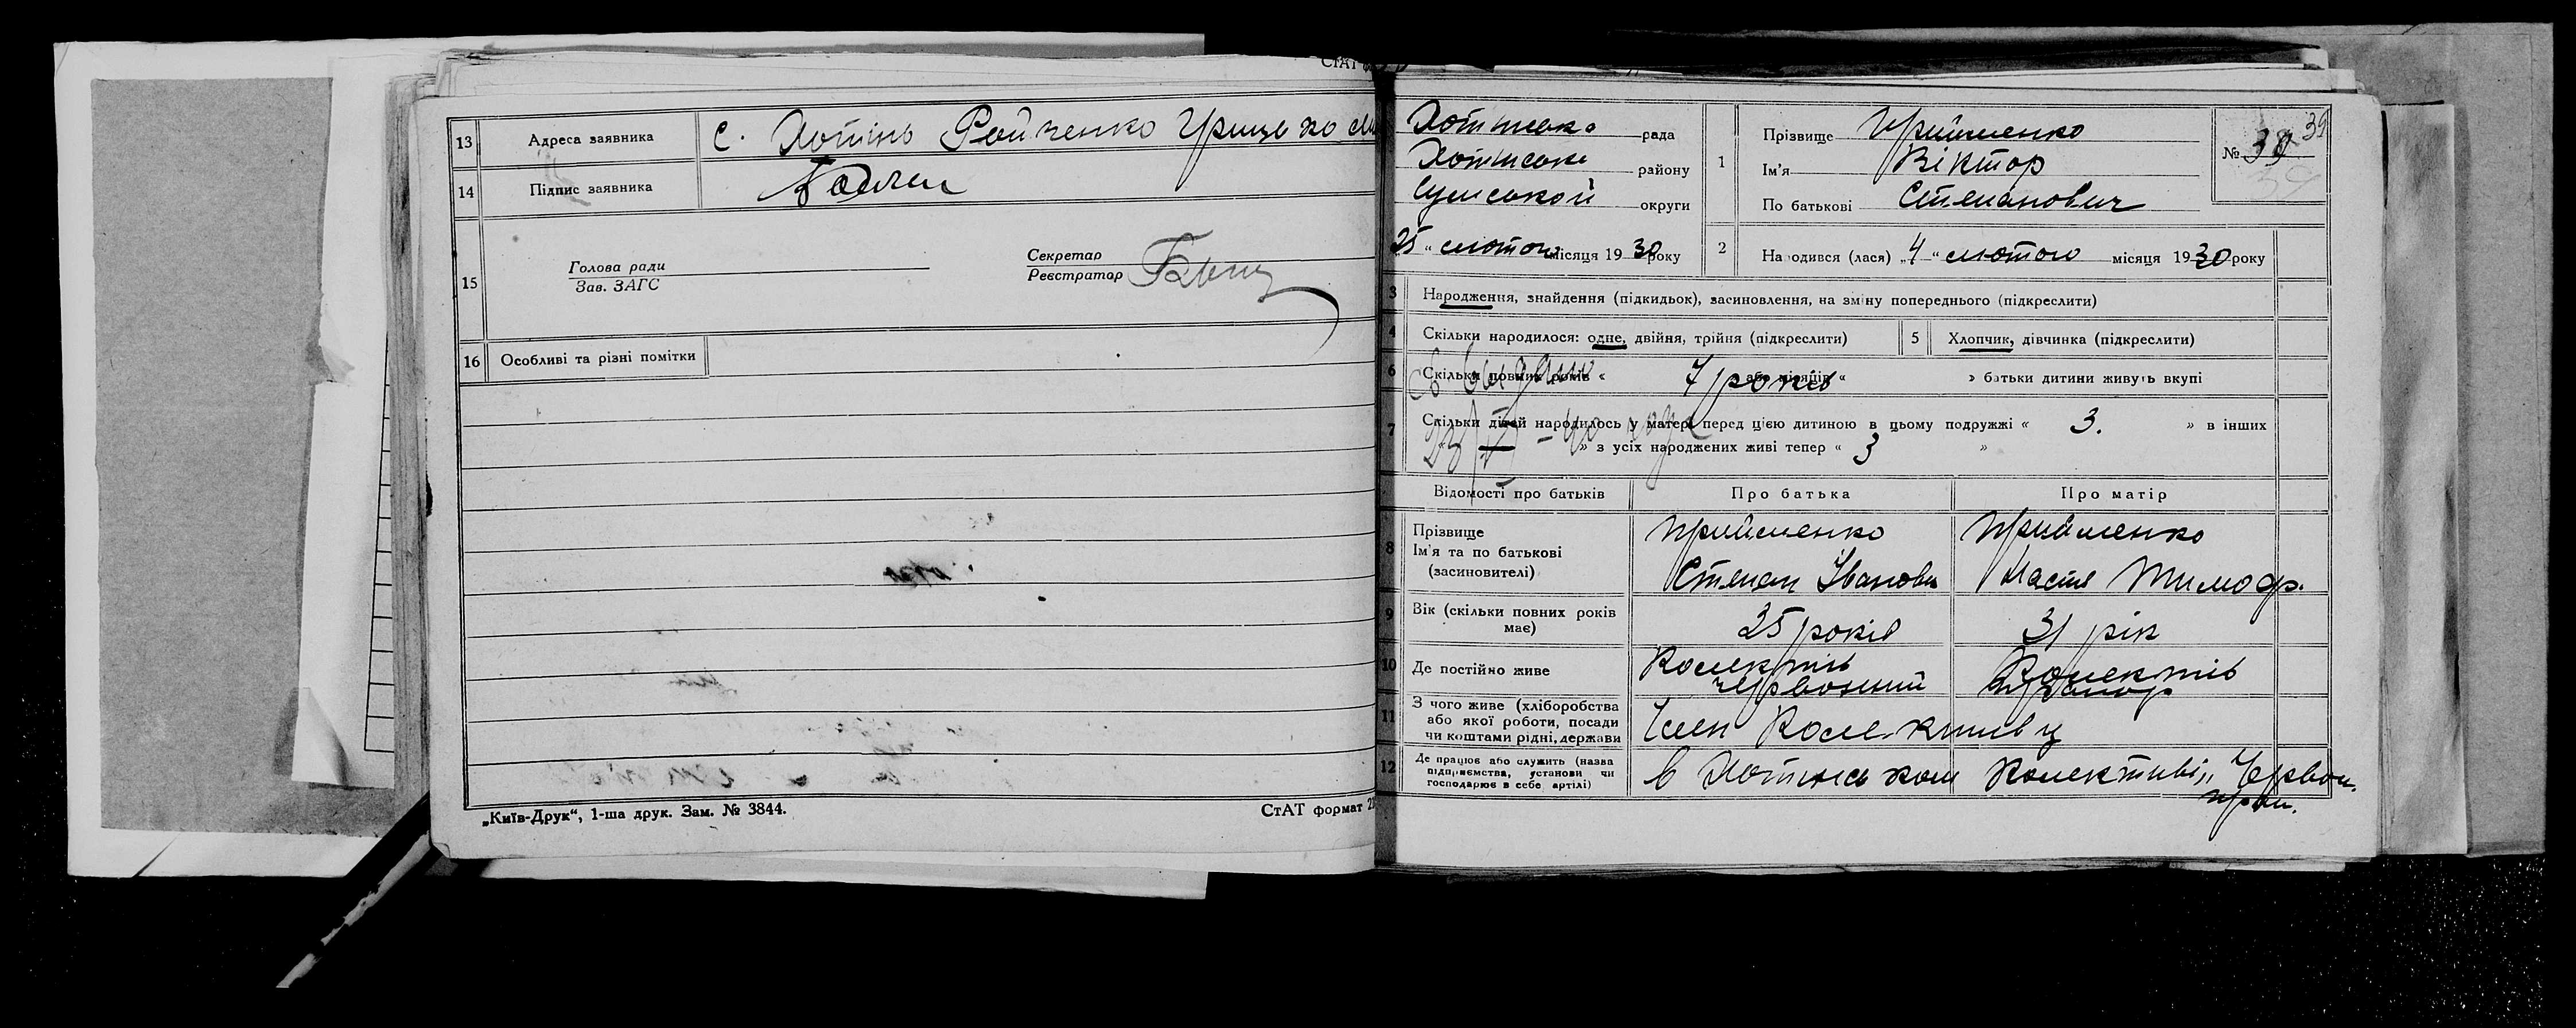 13 Адреса заявника с. Хотінь Грицько
14 Підпис заявника
15 Голова ради
Зав. ЗАГС
Секретар
Реєстратор
16 Особливі та різні помітки
„Київ-Друк“, 1-ша друк. Зам. № 3844.
СтАТ формат
Хотінська рада
Хотінське району
Сумської округи
25 " лютого місяця 1930 року
1 Прізвище Прийменко
Ім'я Віктор
По батькові Степанович
№ 39
2 Народився (лася) „4 “ лютого місяця 1930 року
3 Народження, знайдення (підкидьок), засиновлення, на зміну попереднього (підкреслити)
4 Скільки народилося: одне, двійня, трійня (підкреслити)
5 Хлопчик, дівчинка (підкреслити)
6 Скільки повних років « 7 років або місяців « » батьки дитини живуть вкупі
7 Скільки дітей народилось у матері перед цією дитиною в цьому подружжі « 3. » в інших
» з усіх народжених живі тепер « 3 »
Відомості про батьків Про батька Про матір
8 Прізвище Прийменко Прийменко
Ім'я та по батькові
(засиновителі) Степан Іванови Настя Тимоф.
9 Вік (скільки повних років
має) 25 років 31 рік
10 Де постійно живе Колектів Колектів
Червоний прапор
11 З чого живе (хліборобства
або якої роботи, посади
чи коштами рідні, держави Член Колективу
12 Де працює або служить (назва
підприємства, установи чи
господарює в себе артілі) в Хотинськом Колективі „Червон.
прап.